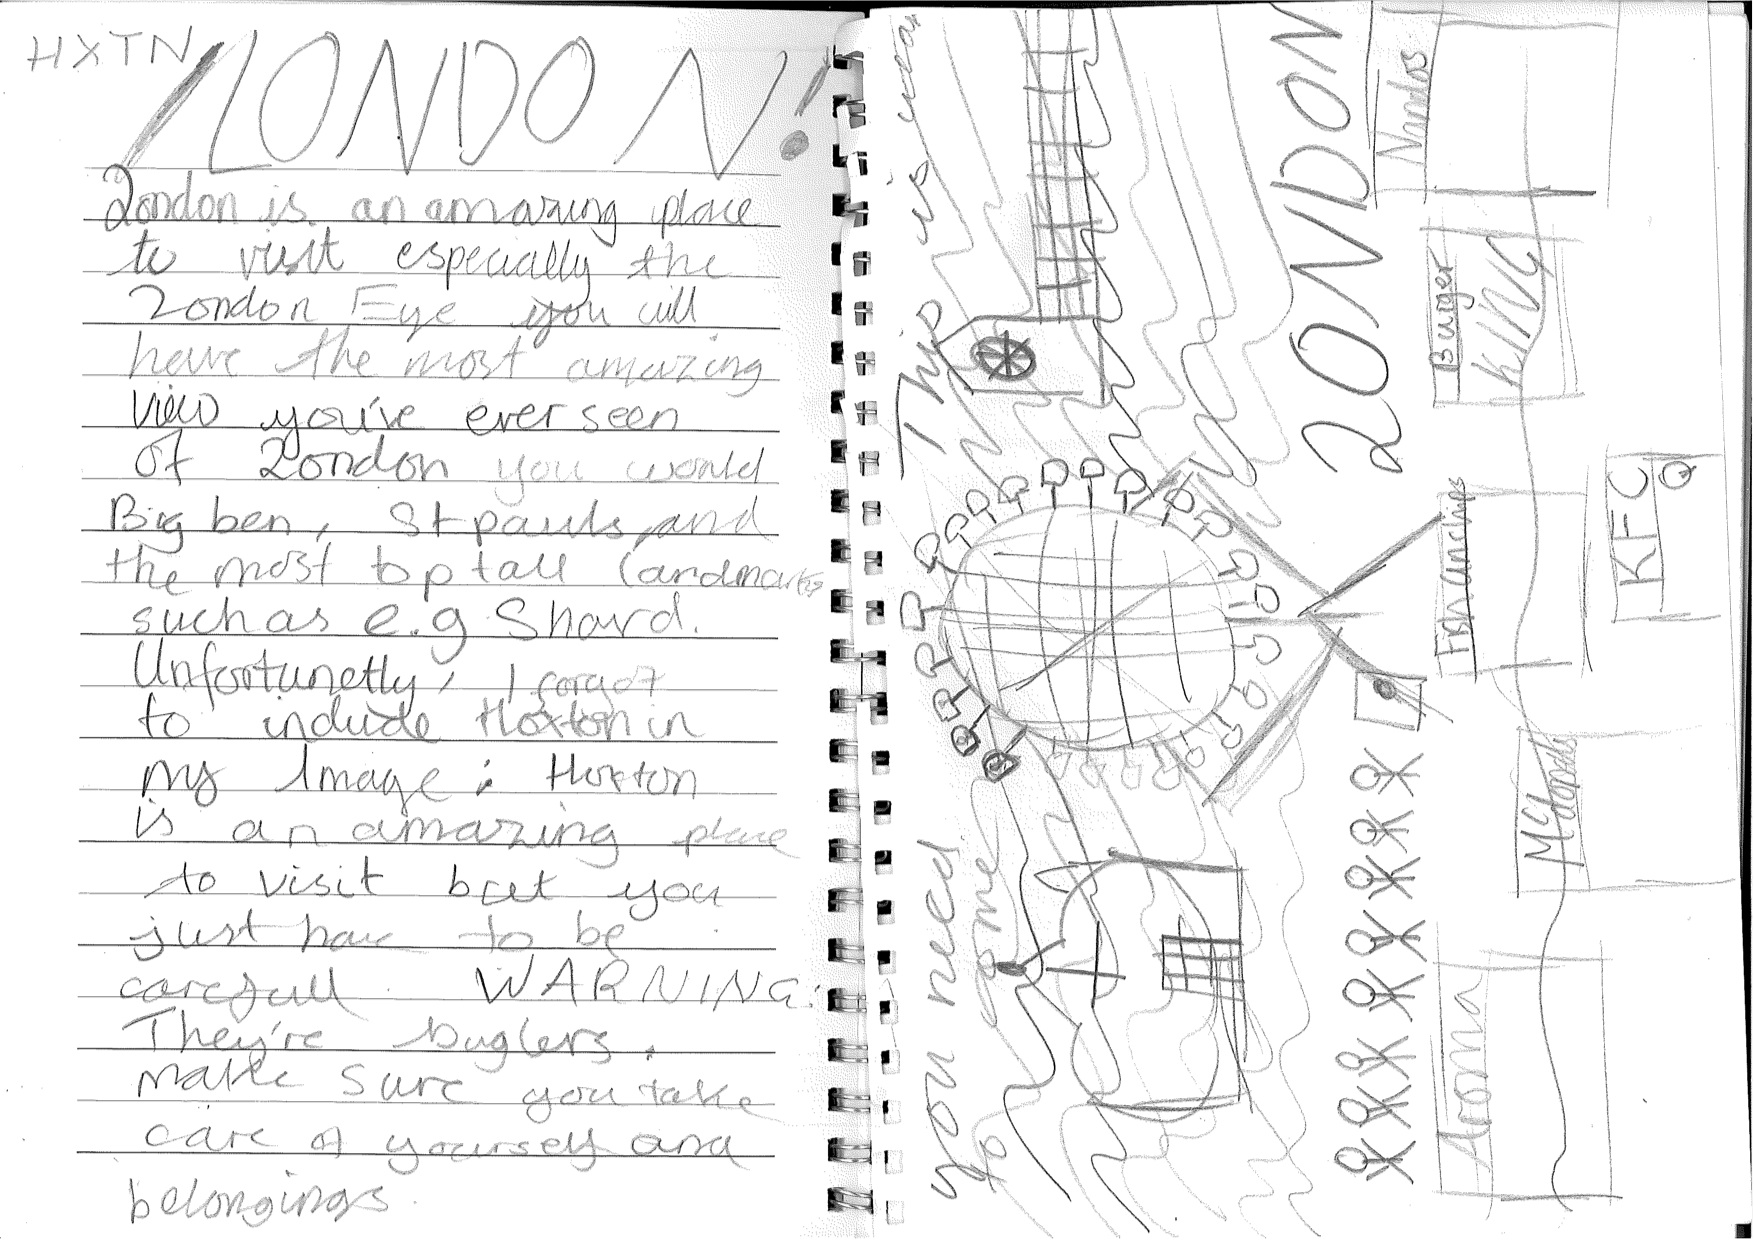 HXTN
LONDON!
London is an amazing place
to visit especially the
London Eye you will
have the most amazing
view you've ever seen
of London you would
Big ben, St pauls, and
the most top tall landmarks
such as e.g Shard.
Unfortunetly, I forgot
to include Hoxton in
my Image: Hoxton
is an amazing place
to visit but you
just have to be
carefull. WARNING:
They're buglers.
make sure you take
care of yourself and
belongings.
you need
to come
This is
LONDON
Aroma
McDonalds
Fish and chips
KFC
Burger
KING
Nandos